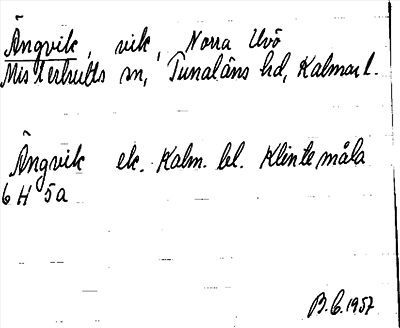 Ängvik, vik, Norra Uvö
Misterhults sn, Tunaläns hd, Kalmar l.
Ängvik ek. Kalm. bl. Klintemåla
6 H 5a
B.C. 1957